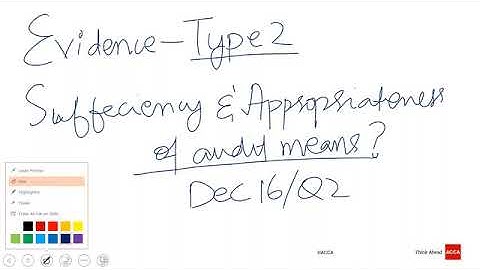 Evidence - Type 2
Suffeciency & Appropriateness
of audit means?
Dec 16/Q2
Laser Pointer
Pen
Highlighter
Eraser
Erase All Ink on Slide
#ACCA
Think Ahead ACCA